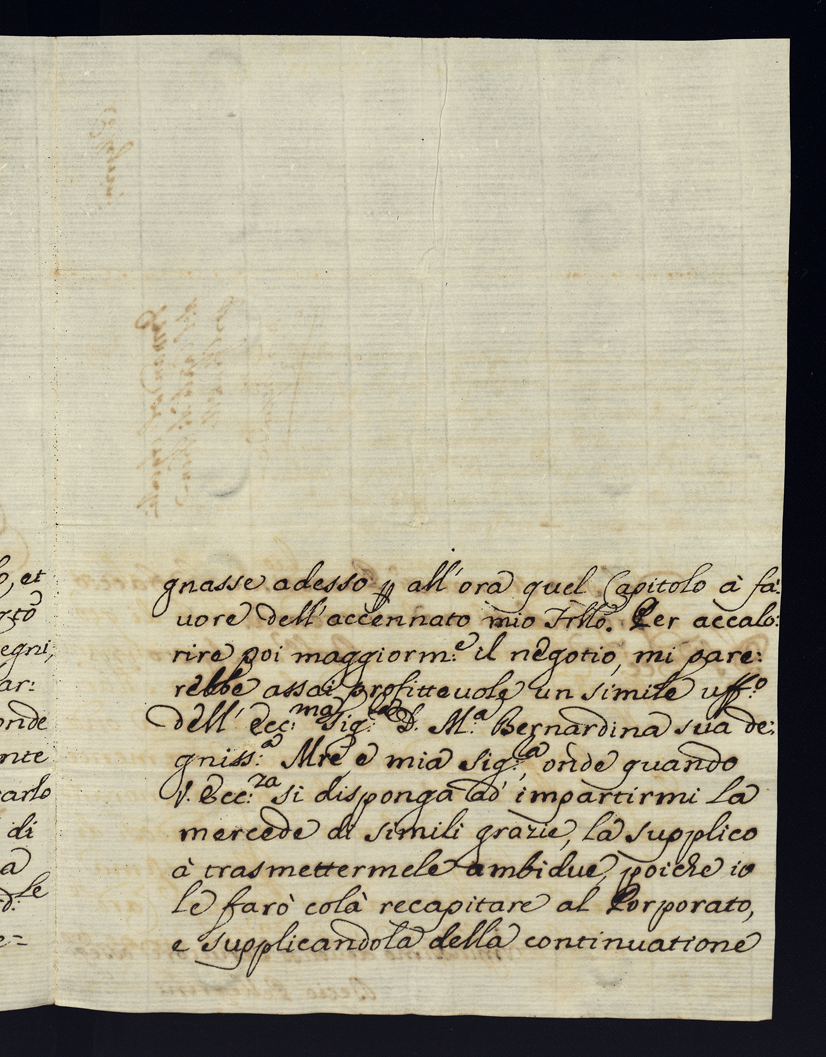 o, et
egni,
ar:
onde
nte
carlo
di
a
le
e=
gnasse adesso p all'ora quel Capitolo à fa:
uore dell'accennato mio Frllo. Per accalo:
rire poi maggiorm.e il negotio, mi pare:
rebbe assai profitteuole un simile uff.o
dell'Ecc.ma Sig.ra D. M.a Bernardina sua de:
gniss.a Mre e mia Sig.ra onde quando
V. Ecc.za si disponga ad impartirmi la
mercede di simili grazie, la supplico
à trasmettermele ambidue, poiche io
le farò colà recapitare al Porporato,
e supplicandola della continuatione